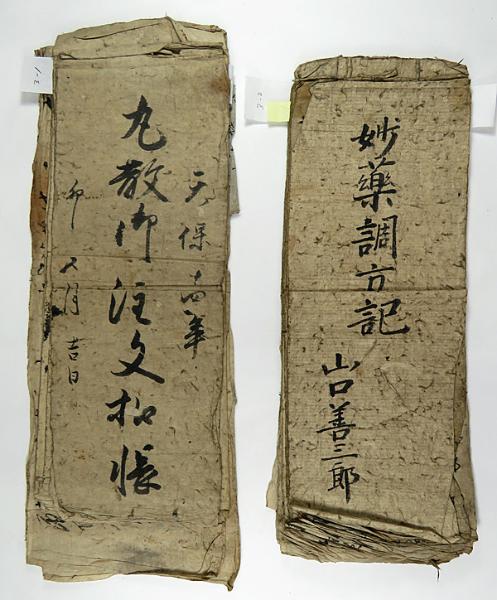 妙薬調方記
山口善三郎
天保十四年
丸散御注文扣帳
卯 五月吉日